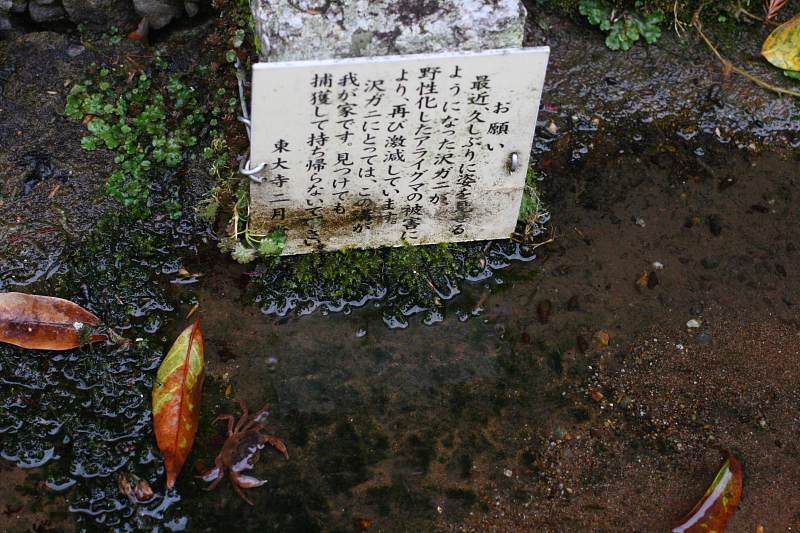 お願い
最近久しぶりに姿を見る
ようになった沢ガニが、
野性化したアライグマの被害に
より、再び激減しています。
沢ガニにとっては、この溝が
我が家です。見つけても
捕獲して持ち帰らないで下さい
東大寺二月